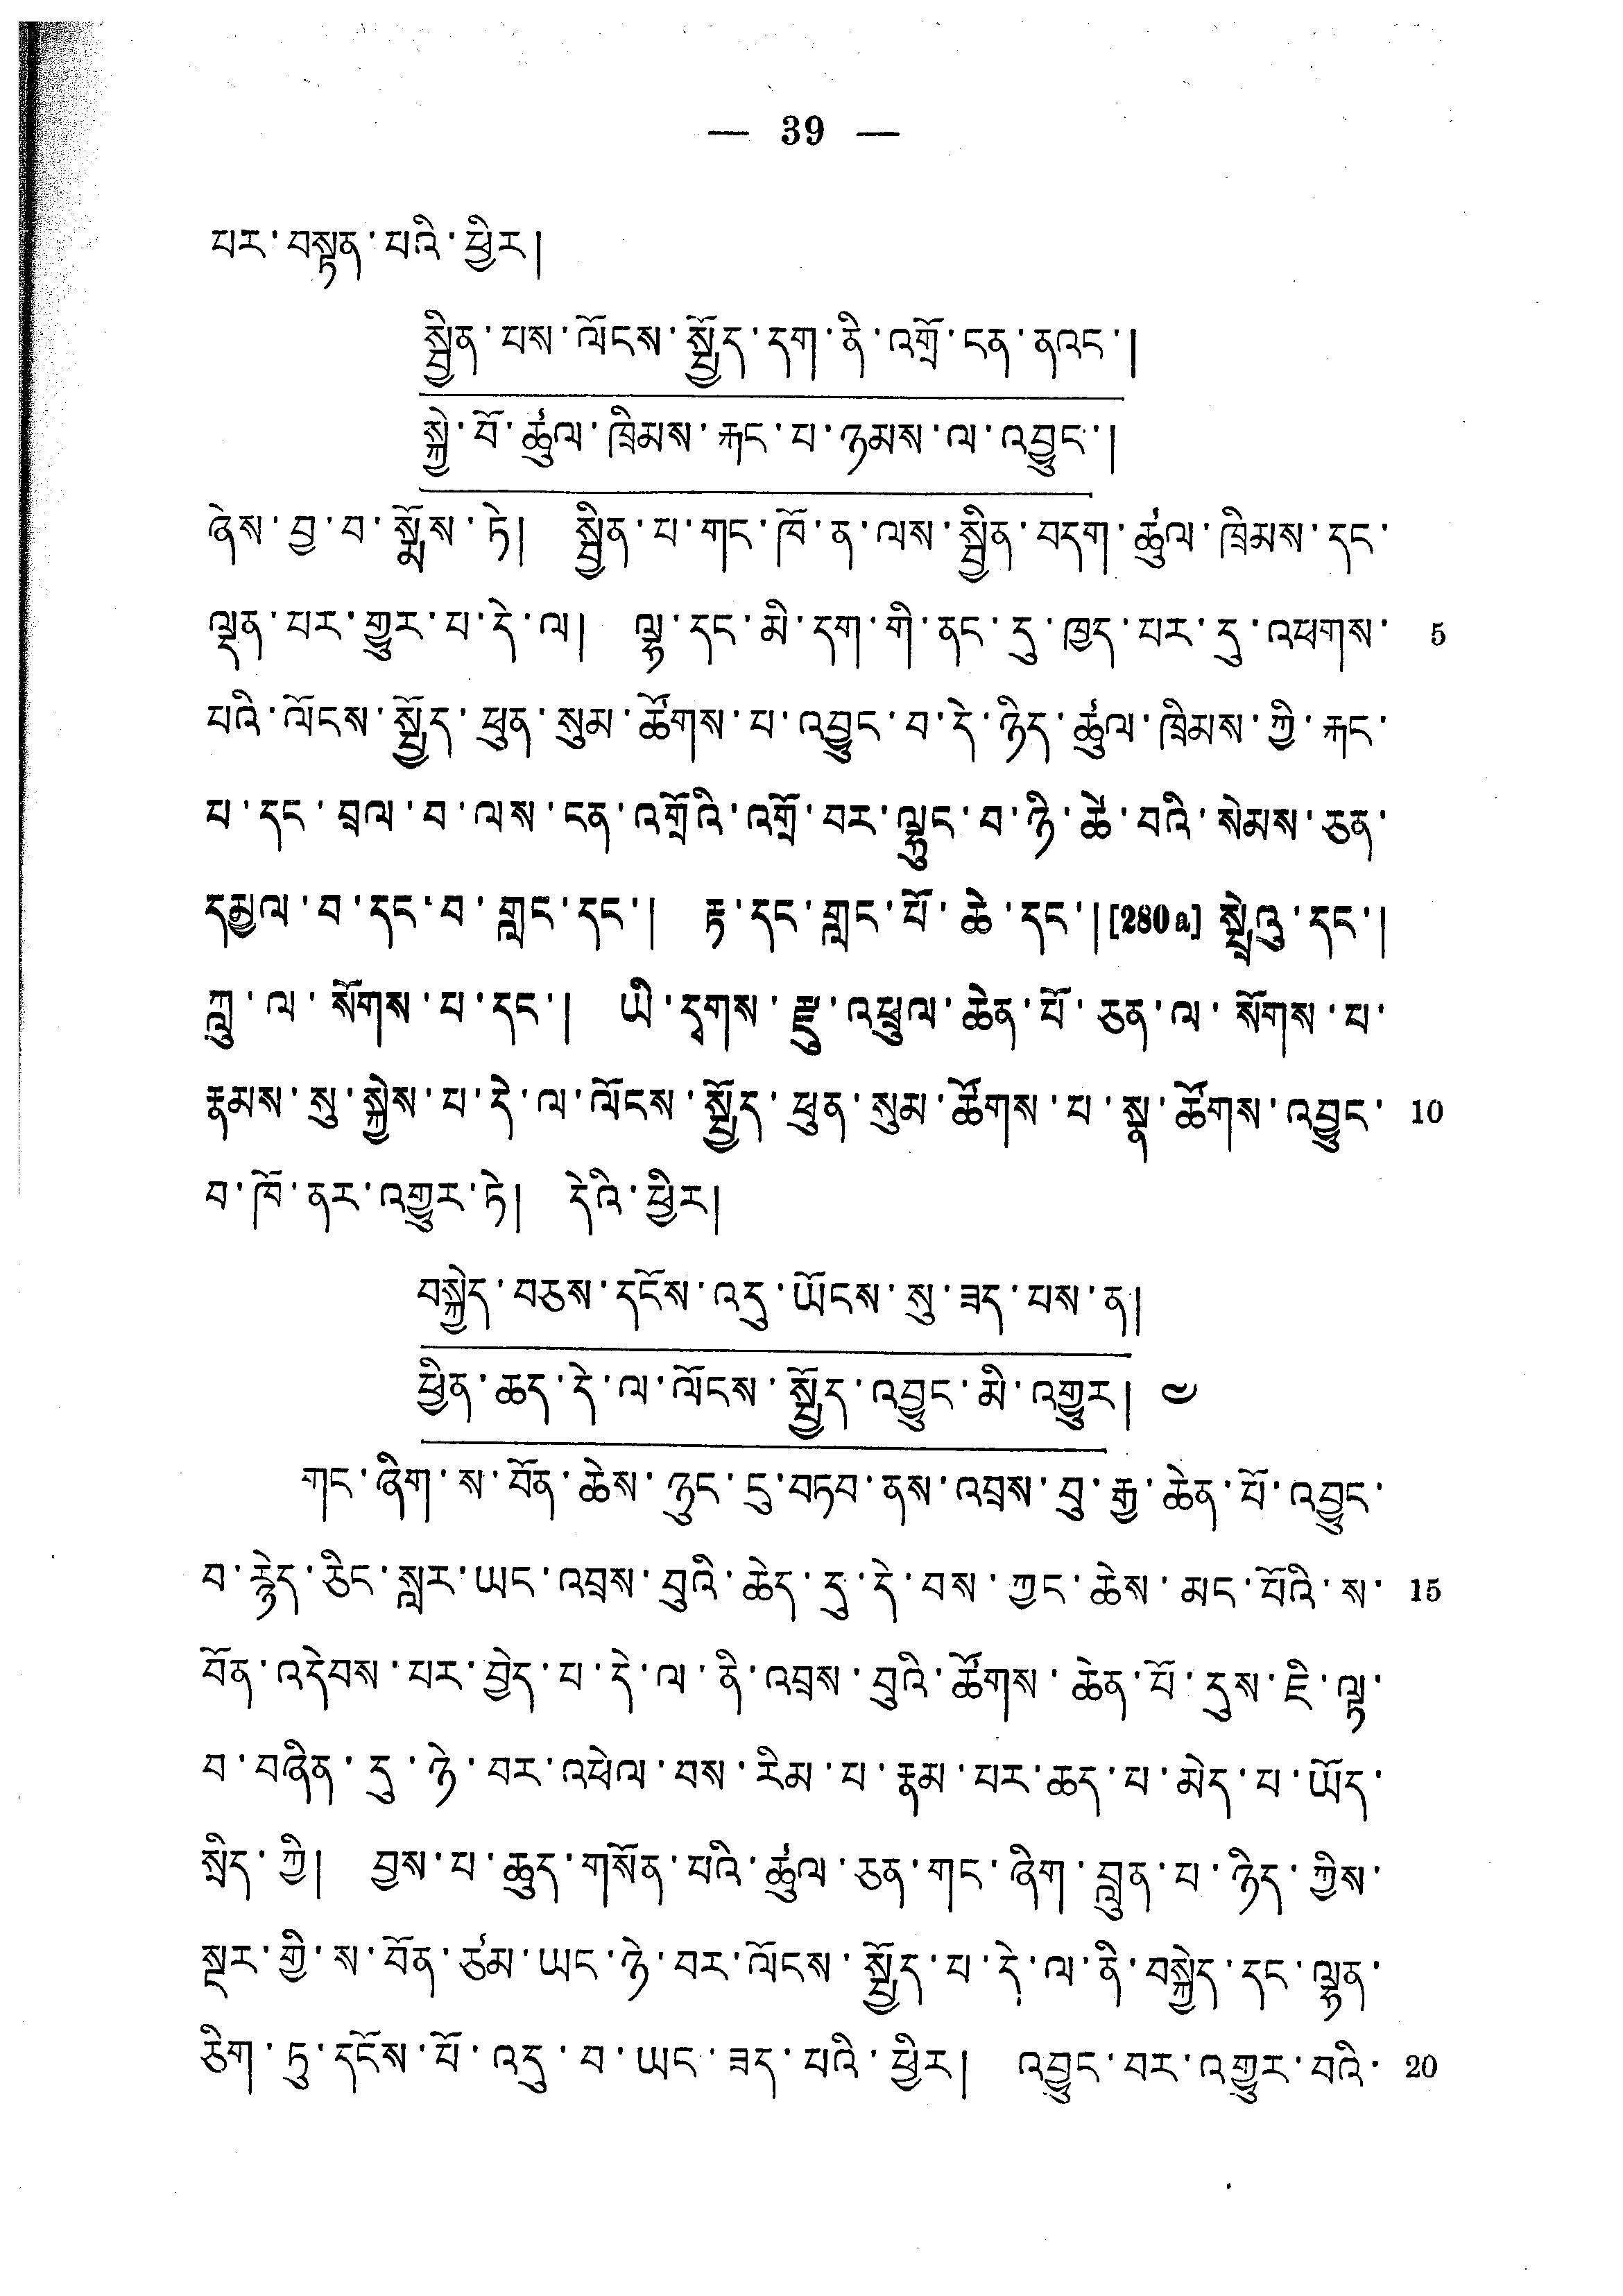 — 39 —
པར་བསྟན་པའི་ཕྱིར།
སྦྱིན་པས་ལོངས་སྤྱོད་དག་ནི་འགྲོ་ངན་ནའང་།
སྐྱེ་བོ་ཚུལ་ཁྲིམས་རྐང་པ་ཉམས་ལ་འབྱུང་།
ཞེས་བྱ་བ་སྨོས་ཏེ། སྦྱིན་པ་གང་ཁོ་ན་ལས་སྦྱིན་བདག་ཚུལ་ཁྲིམས་དང་
ལྡན་པར་གྱུར་པ་དེ་ལ། ལྷ་དང་མི་དག་གི་ནང་དུ་ཁྱད་པར་དུ་འཕགས་ 5
པའི་ལོངས་སྤྱོད་ཕུན་སུམ་ཚོགས་པ་འབྱུང་བ་དེ་ཉིད་ཚུལ་ཁྲིམས་ཀྱི་རྐང་
པ་དང་བྲལ་བ་ལས་ངན་འགྲོའི་འགྲོ་བར་ལྷུང་བ་ཉི་ཚེ་བའི་སེམས་ཅན་
དམྱལ་བ་དང་བ་གླང་དང་། རྟ་དང་གླང་པོ་ཆེ་དང་། [280a] སྤྲེའུ་དང་།
ཀླུ་ལ་སོགས་པ་དང་། ཡི་དྭགས་རྫུ་འཕྲུལ་ཆེན་པོ་ཅན་ལ་སོགས་པ་
རྣམས་སུ་སྐྱེས་པ་དེ་ལ་ལོངས་སྤྱོད་ཕུན་སུམ་ཚོགས་པ་སྣ་ཚོགས་འབྱུང་ 10
བ་ཁོ་ནར་འགྱུར་ཏེ། དེའི་ཕྱིར།
བསྐྱེད་བཅས་དངོས་འདུ་ཡོངས་སུ་ཟད་པས་ན།
ཕྱིན་ཆད་དེ་ལ་ལོངས་སྤྱོད་འབྱུང་མི་འགྱུར། ༥
གང་ཞིག་ས་བོན་ཆེས་ཉུང་ངུ་བཏབ་ནས་འབྲས་བུ་རྒྱ་ཆེན་པོ་འབྱུང་
བ་རྙེད་ཅིང་སླར་ཡང་འབྲས་བུའི་ཆེད་དུ་དེ་བས་ཀྱང་ཆེས་མང་པོའི་ས་ 15
བོན་འདེབས་པར་བྱེད་པ་དེ་ལ་ནི་འབྲས་བུའི་ཚོགས་ཆེན་པོ་དུས་ཇི་ལྟ་
བ་བཞིན་དུ་ཉེ་བར་འཕེལ་བས་རིམ་པ་རྣམ་པར་ཆད་པ་མེད་པ་ཡོད་
སྲིད་ཀྱི། བྱས་པ་ཆུད་གསོན་པའི་ཚུལ་ཅན་གང་ཞིག་བླུན་པ་ཉིད་ཀྱིས་
སྔར་གྱི་ས་བོན་ཙམ་ཡང་ཉེ་བར་ལོངས་སྤྱོད་པ་དེ་ལ་ནི་བསྐྱེད་དང་ལྷན་
ཅིག་ཏུ་དངོས་པོ་འདུ་བ་ཡང་ཟད་པའི་ཕྱིར། འབྱུང་བར་འགྱུར་བའི་ 20